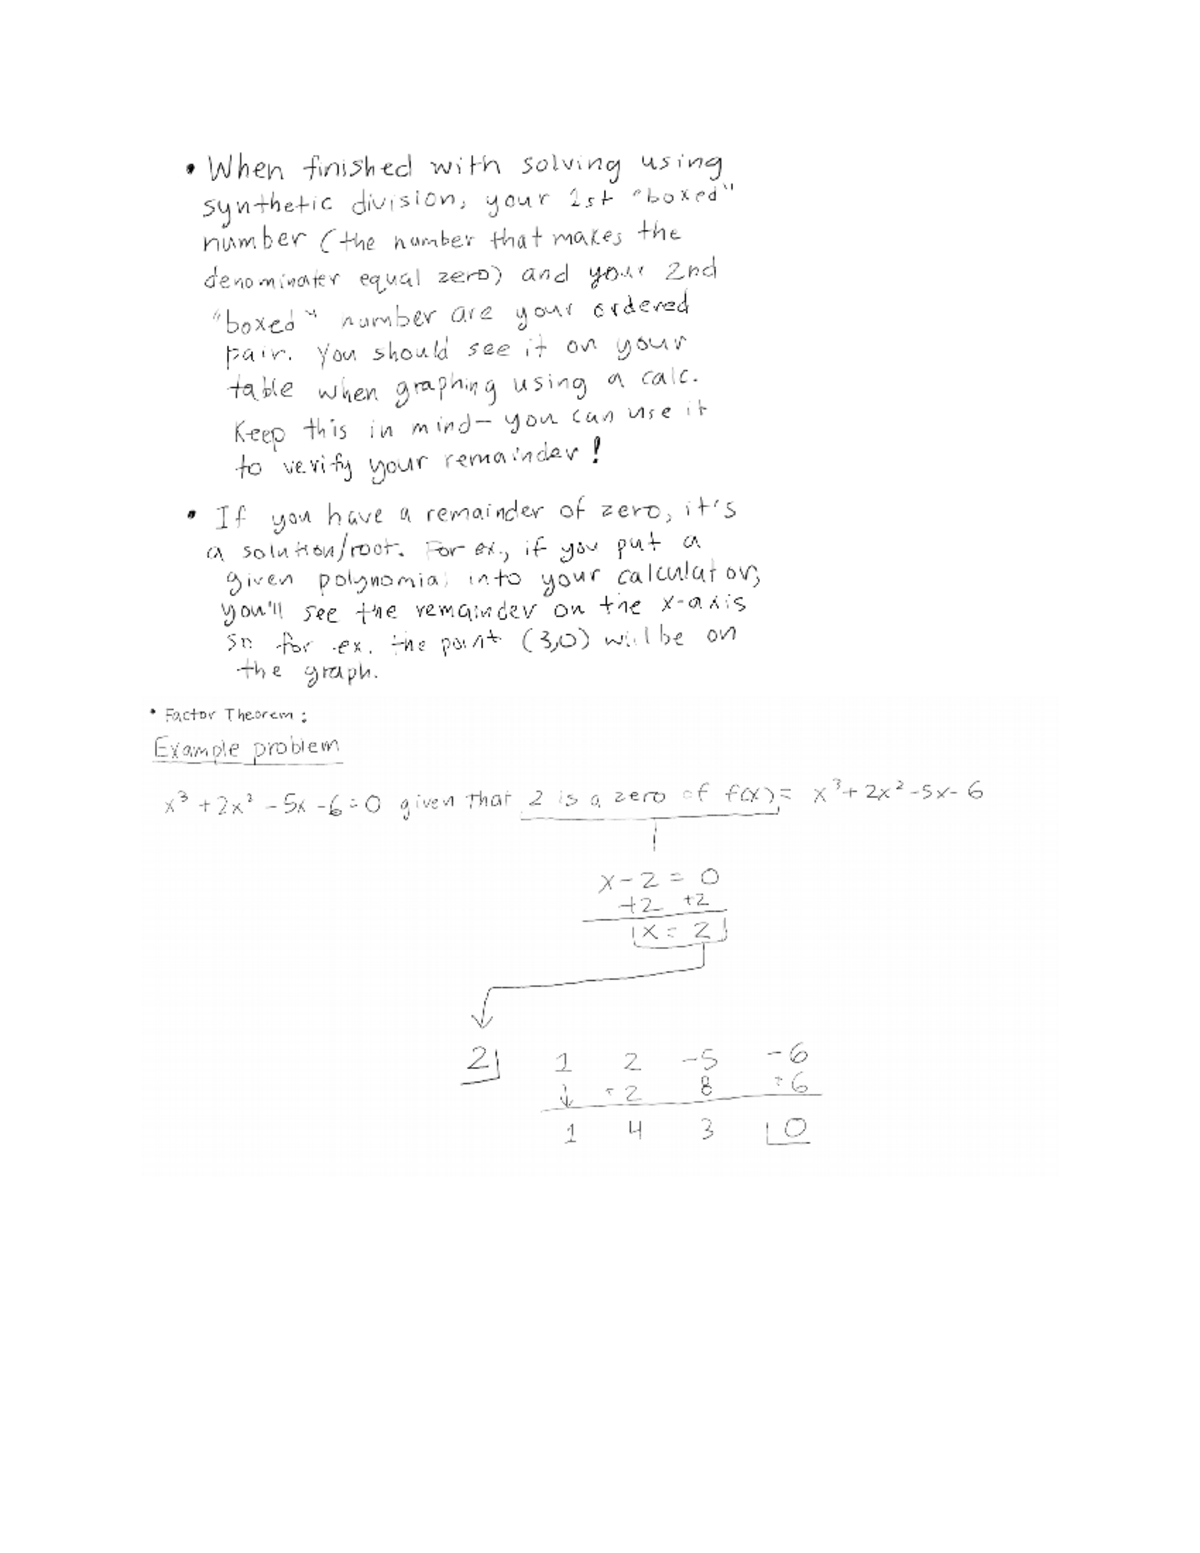 • When finished with solving using
synthetic division, your 1st "boxed"
number (the number that makes the
denominater equal zero) and your 2nd
"boxed" number are your ordered
pair. You should see it on your
table when graphing using a calc.
Keep this in mind- you can use it
to verify your remainder!
• If you have a remainder of zero, it's
a solution/root. For ex., if you put a
given polynomial into your calculator,
you'll see the remainder on the x-axis
so for ex. the point (3,0) will be on
the graph.
• Factor Theorem:
Example problem
x³ + 2x² - 5x - 6 = 0 given that 2 is a zero of f(x) = x³ + 2x² - 5x - 6
x - 2 = 0
+2 +2
x = 2
2 1 2 -5 -6
↓ 2 8 6
1 4 3 0